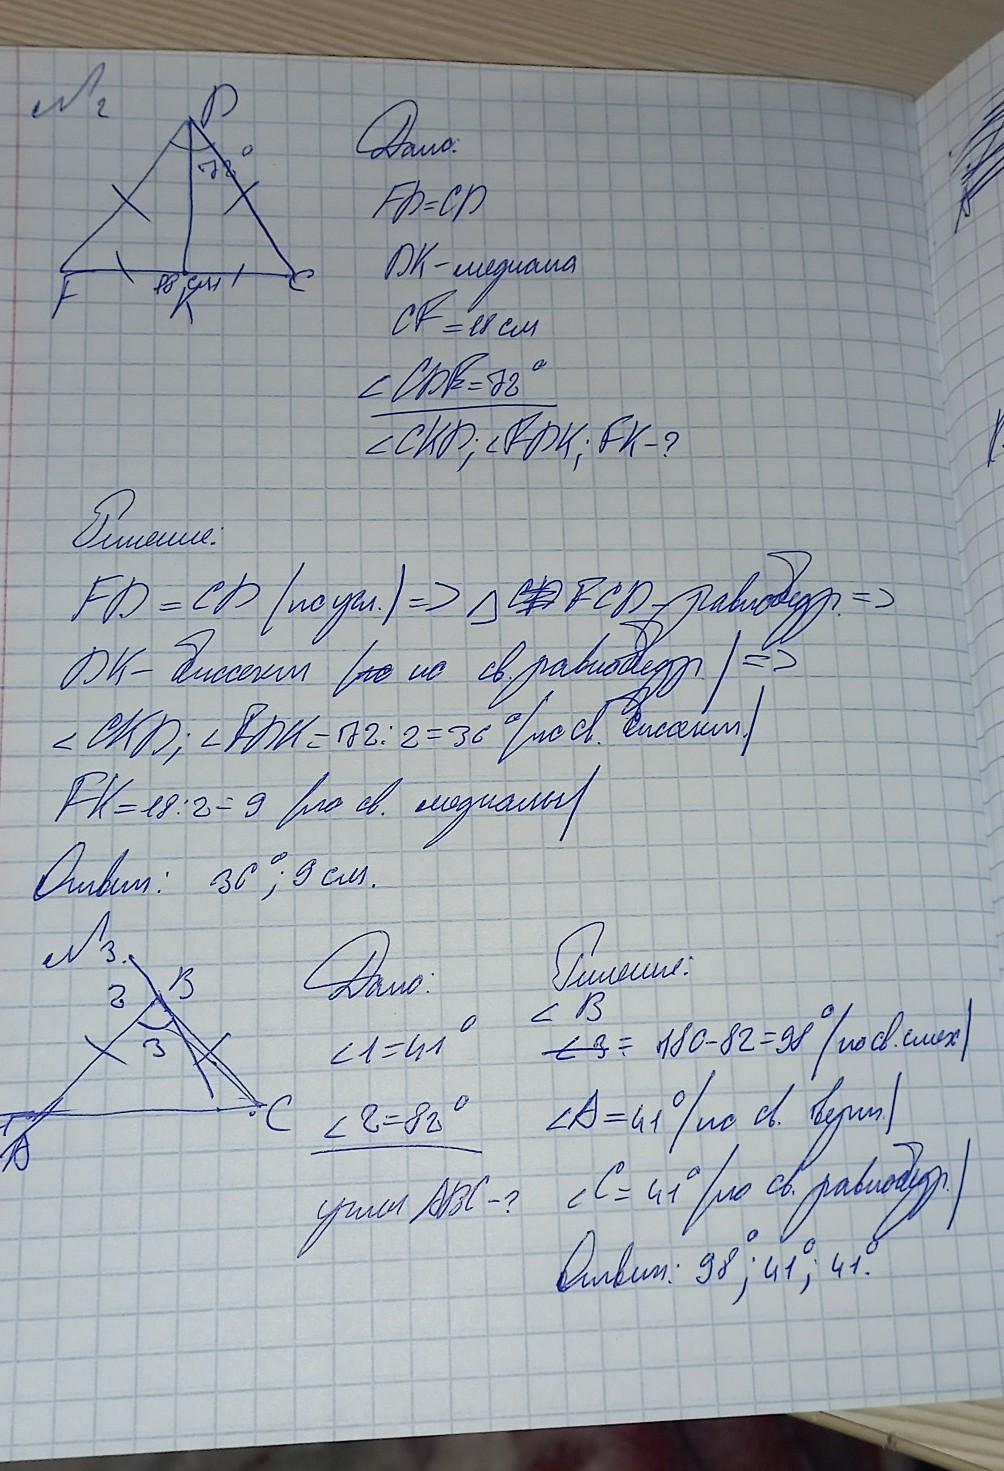 №2
D
72°
F
18 см
K
C
Дано:
FD=CD
DK-медиана
CF=18 см
∠CDF=72°
∠CKD; ∠FDK; FK-?
Решение:
FD=CD (по усл.) => △ FCD-равнобедр. =>
DK-биссектр (по св. равнобедр.) =>
∠CKD; ∠FDK=72:2=36° (по св. биссектр.)
FK=18:2=9 (по св. медианы)
Ответ: 36°; 9 см.
№3.
2
B
3
C
A
Дано:
∠1=41°
∠2=82°
углы ABC-?
Решение:
∠B
∠3= 180-82=98° (по св. смеж)
∠A=41° (по св. верт.)
∠C=41° (по св. равнобедр.)
Ответ: 98°; 41°; 41°.